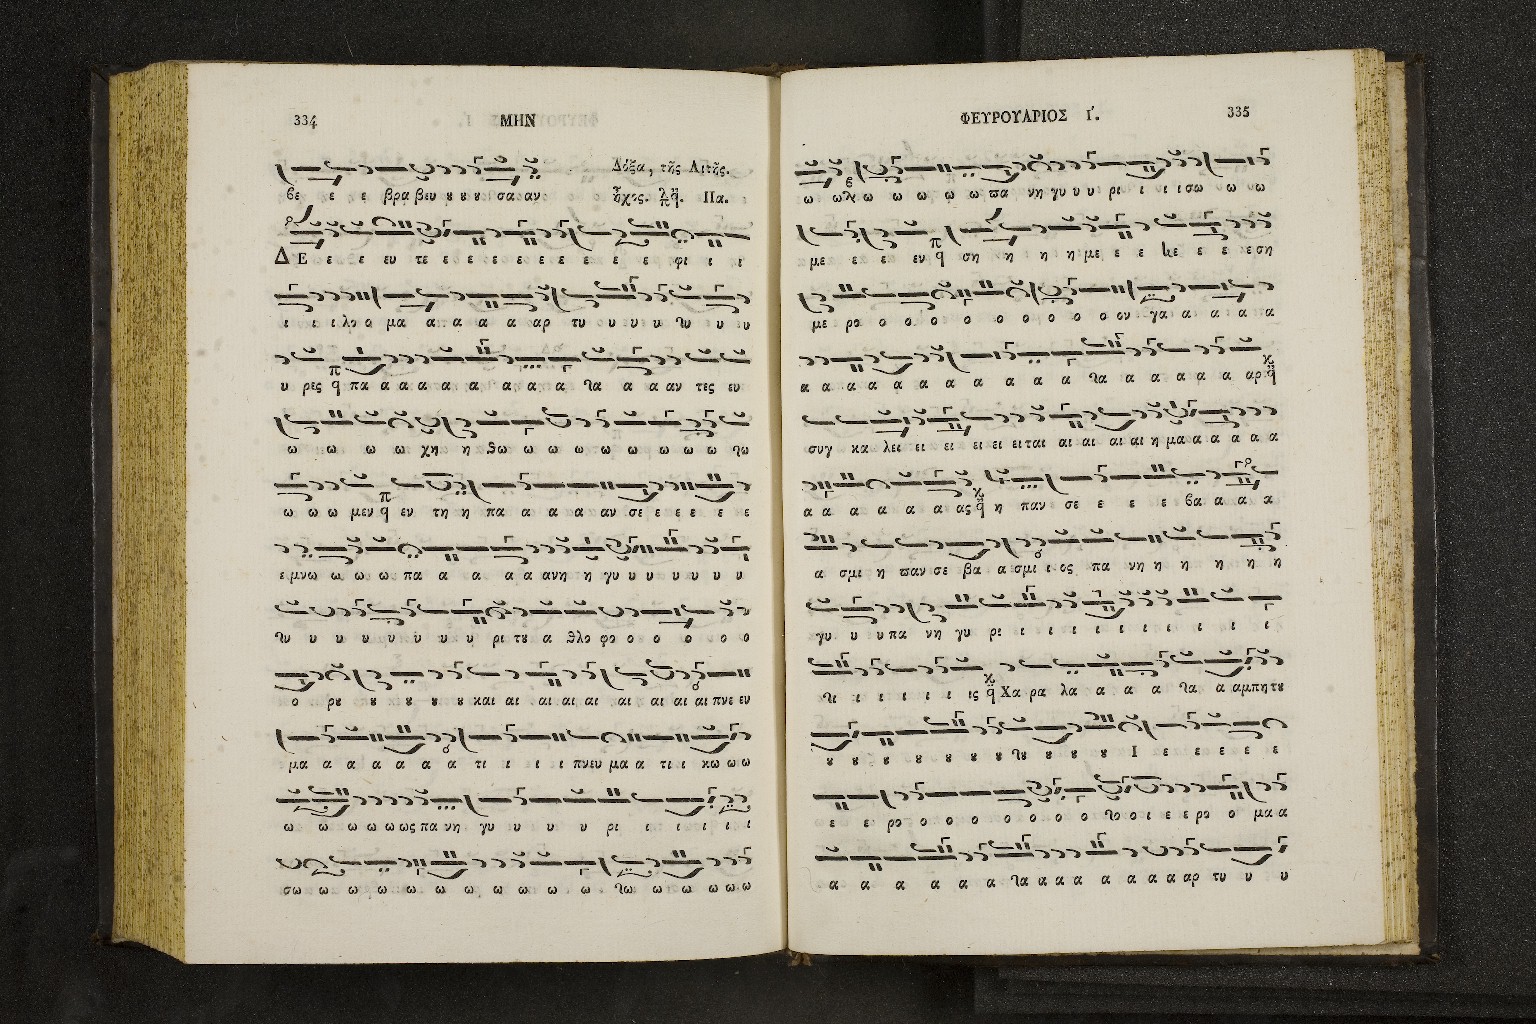 334 ΜΗΝ
βε ε ε βρα βευ ȣ ȣ ȣ σα αν
Δόξα, τῆς Λιτῆς.
ἦχος. Πα.
ΔΕ ε ε ευ τε ε ε ε ε ε ε ε ε ε φι ι ι
ι ι ι λο ο μα α α α α αρ τυ υ υ υ υ υ υ
υ ρες πα α α α α α α α α α α αν τες ευ
ω ω ω ω χη η θω ω ω ω ω ω ω ω ω
ω ω ω μεν εν τη η πα α α α αν σε ε ε ε ε ε
ε μνω ω ω ω πα α α α α ανη η γυ υ υ υ υ υ υ
υ υ υ υ υ υ υ υ ρι τȣ α θλο φο ο ο ο ο ο
ο ρȣ ȣ ȣ ȣ ȣ ȣ και αι αι αι αι αι αι αι αι πνε ευ
μα α α α α α α τι ι ι ι πνευ μα α τι ι κω ω ω
ω ω ω ω ω ως πα νη γυ υ υ υ υ ρι ι ι ι ι ι
σω ω ω ω ω ω ω ω ω ω ω ω ω ω ω ω
ΦΕΥΡΟΥΑΡΙΟΣ Ι΄. 335
ω ω ω ω ω ω ω πα νη γυ υ υ ρι ι ι ι σω ω ω
με ε ε εν ση η η η με ε ε ε ε ε ε ση
με ρο ο ο ο ο ο ο ο ο ον γα α α α α
α α α α α α α α α α α α α α α α α αρ
συγ κα λει ει ει ει ει ει ται αι αι αι αι η μα α α α α α
α α α α α α α ας η παν σε ε ε ε ε βα α α α
α σμι η παν σε βα α σμι ι ος πα νη η η η η η
γυ υ υ πα νη γυ ρι ι ι ι ι ι ι ι ι ι ι
ι ι ι ι ι ις Χα ρα λα α α α α α αμπη τȣ
ȣ ȣ ȣ ȣ ȣ ȣ ȣ ȣ ȣ ȣ ȣ Ι ε ε ε ε ε
ε ε ρο ο ο ο ο ο ο ο ο ο ι ε ε ρο ο μα α
α α α α α α α α α α α α α α αρ τυ υ υ